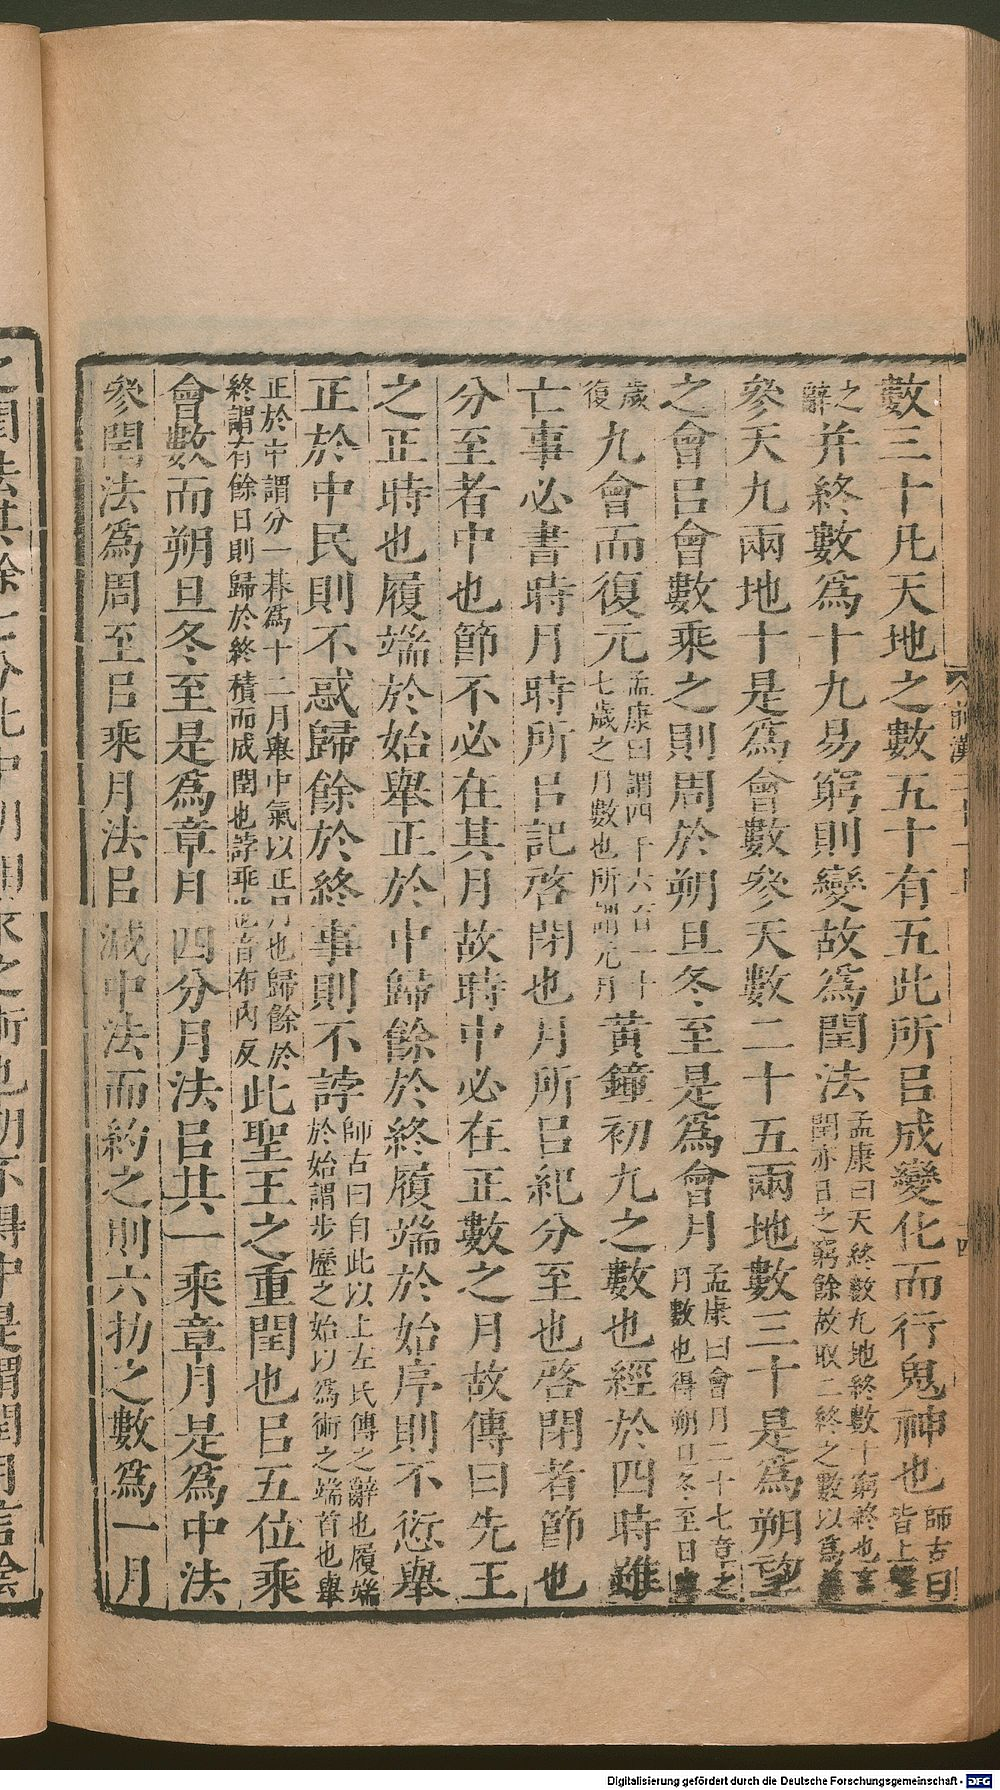 數三十凡天地之數五十有五此所㠯成變化而行鬼神也師古曰皆上
之辭并終數爲十九易窮則變故爲閏法孟康曰天終數九地終數十窮終也閏亦日之窮餘故取二終之數以爲
參天九兩地十是爲會數參天數二十五兩地數三十是爲朔望
之會㠯會數乘之則周於朔旦冬至是爲會月孟康曰會月二十七章之月數也得朔旦冬至日
歲復九會而復元孟康曰謂四千六百一十七歲之月數也所謂元月黃鐘初九之數也經於四時雖
亡事必書時月時所㠯記啓閉也月所㠯紀分至也啓閉者節也
分至者中也節不必在其月故時中必在正數之月故傳曰先王
之正時也履端於始舉正於中歸餘於終履端於始序則不愆舉
正於中民則不惑歸餘於終事則不誖師古曰自此以上左氏傳之辭也履端於始謂步歷之始以爲術之端首也舉
正於中謂分一朞爲十二月舉中氣以正月也歸餘於終謂有餘日則歸於終積而成閏也誖乖也音布內反此聖王之重閏也㠯五位乘
會數而朔旦冬至是爲章月四分月法㠯其一乘章月是爲中法
參閏法爲周至㠯乘月法㠯減中法而約之則六扐之數爲一月
Digitalisierung gefördert durch die Deutsche Forschungsgemeinschaft - DFG